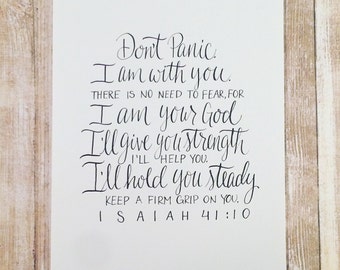 Don't Panic.
I am with you.
THERE IS NO NEED TO FEAR, FOR
I am your God
I'll give you strength
I'LL HELP YOU.
I'll hold you steady
KEEP A FIRM GRIP ON YOU.
ISAIAH 41:10